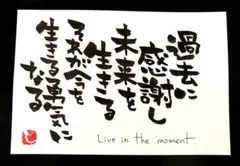 過去に
感謝し
未来を
生きる
それが今を
生きる勇気に
なる
Live in the moment